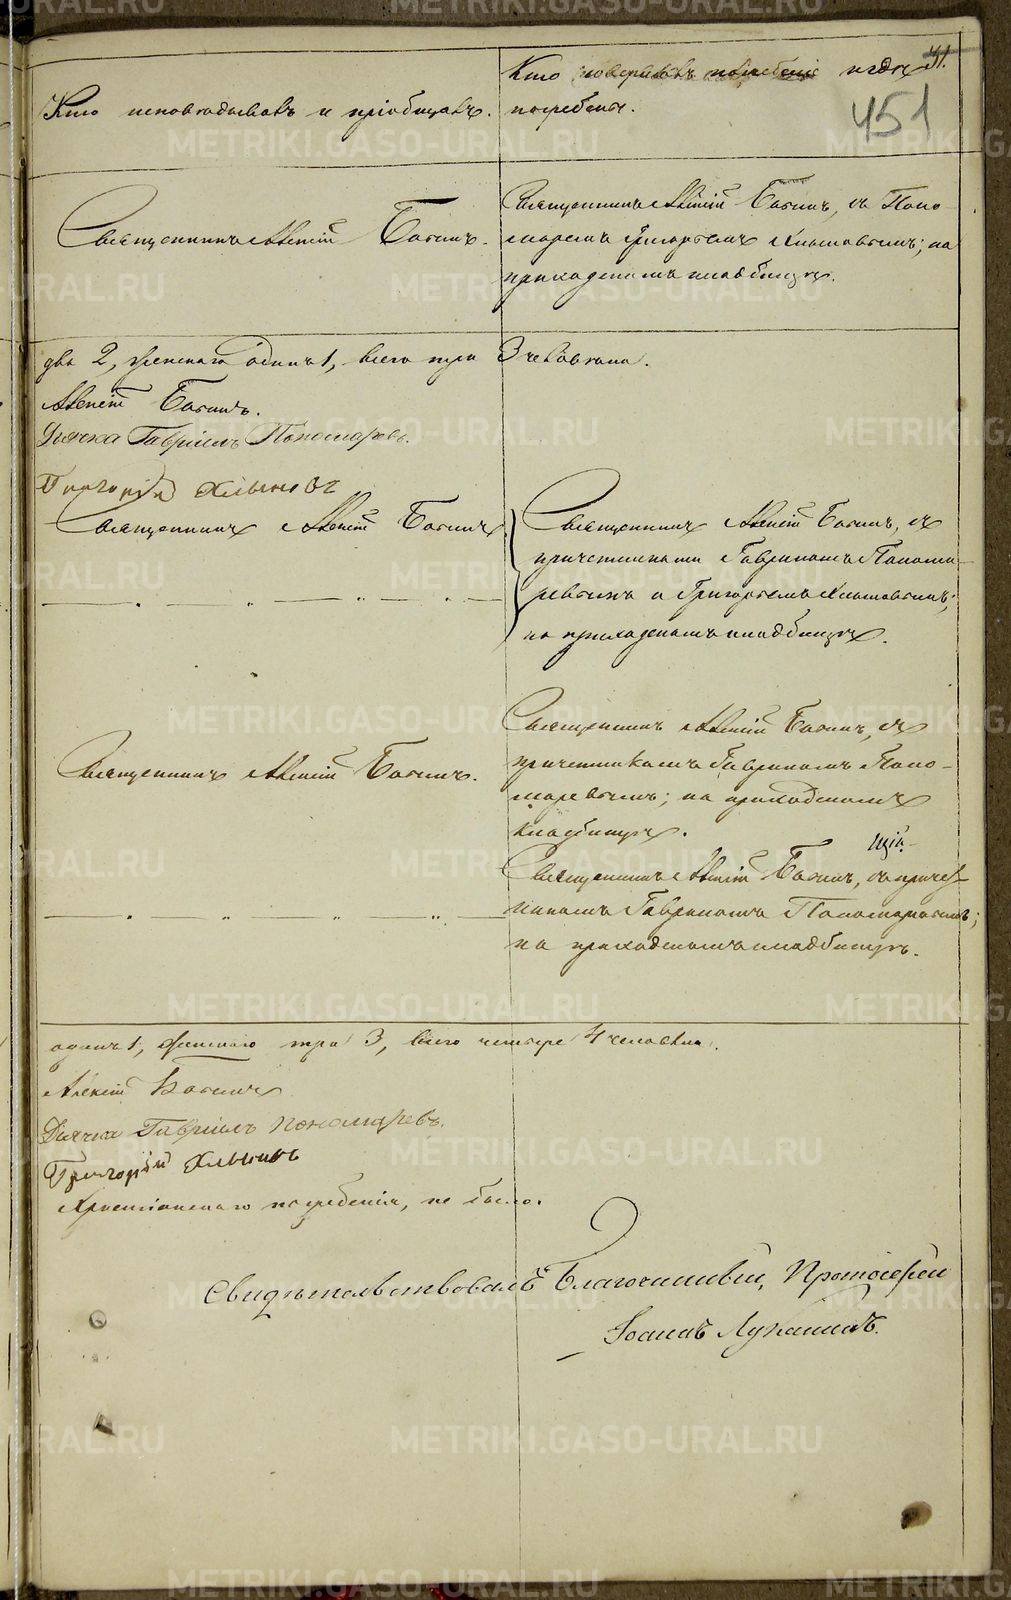 41.
451
Кто исповѣдывалъ и пріобщалъ.
Кто совершалъ погребеніе и гдѣ
погребены.
Священникъ Алексій Боголѣ.
Священникъ Алексій
съ Поно-
маремъ Григоріемъ на
приходскомъ кладбищѣ.
два 2, женскаго одинъ 1, всего три 3 человѣка.
Алексій
Дьячекъ Гавріилъ Пономаревъ.
Григорій Хлыновъ
Священникъ Алексій
Священникъ Алексій съ
причетниками Гавріиломъ Понома-
ревымъ и Григоріемъ Хлыновымъ;
на приходскомъ кладбищѣ.
Священникъ Алексій
Священникъ Алексій съ
причетникомъ Гавріиломъ Поно-
маревымъ; на приходскомъ
кладбищѣ.
Священникъ Алексій съ причет-
никомъ Гавріиломъ Пономаревымъ;
на приходскомъ кладбищѣ.
одинъ 1, женскаго три 3, всего четыре 4 человѣка.
Алексій
Дьячекъ Гавріилъ Пономаревъ.
Григорій Хлыновъ
Христіанскаго погребенія, не было.
Свидѣтельствовалъ Благочинный, Протоіерей
Іоаннъ Луканинъ.
METRIKI.GASO-URAL.RU